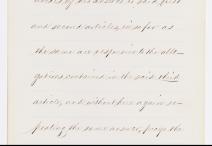 and second articles, in so far as
the same are responsive to the alle-
gations contained in the said third
article, and without here again re-
peating the same answer, prays the